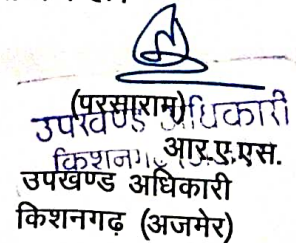 (परसाराम)
उपखण्ड अधिकारी
किशनगढ़
आर.ए.एस.
उपखण्ड अधिकारी
किशनगढ़ (अजमेर)